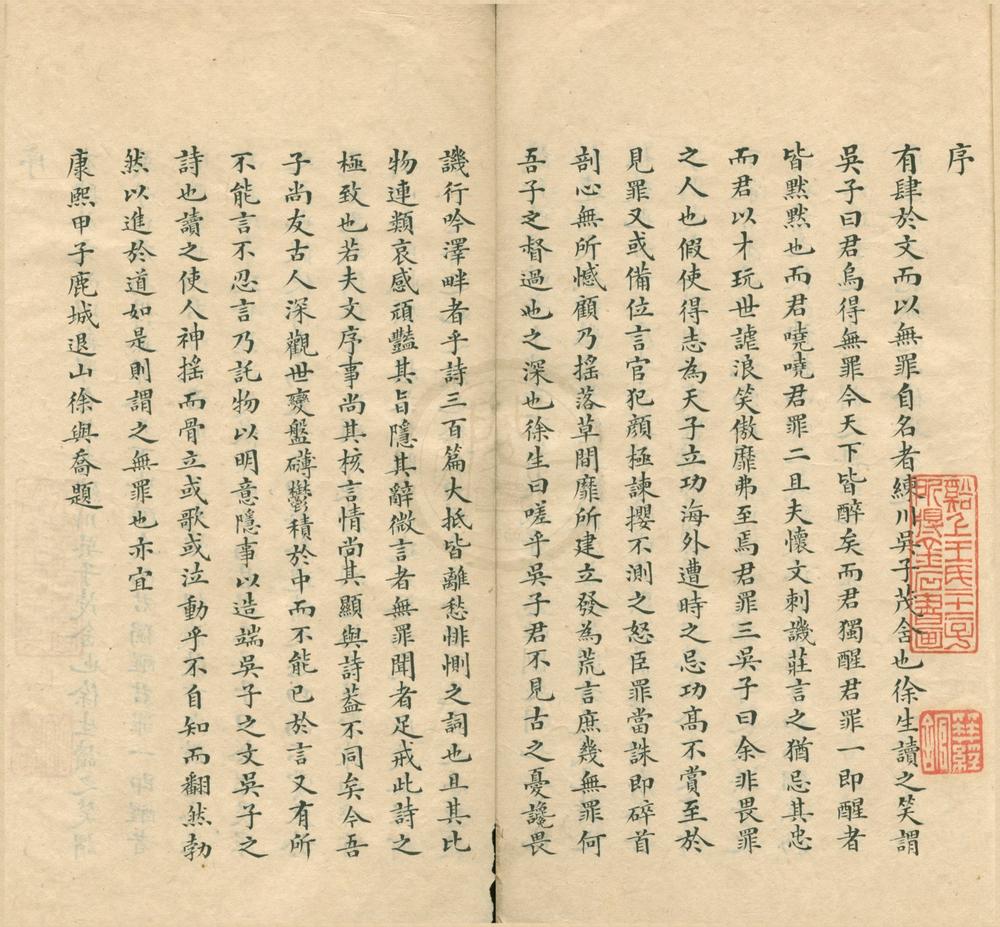 序
有肆於文而以無罪自名者練川吳子茂含也徐生讀之笑謂
吳子曰君烏得無罪今天下皆醉矣而君獨醒君罪一即醒者
皆默默也而君嘵嘵君罪二且夫懷文刺譏莊言之猶忌其忠
而君以才玩世謔浪笑傲靡弗至焉君罪三吳子曰余非畏罪
之人也假使得志為天子立功海外遭時之忌功高不賞至於
見罪又或備位言官犯顏極諫攖不測之怒臣罪當誅即碎首
剖心無所憾顧乃搖落草間靡所建立發為荒言庶幾無罪何
吾子之督過也之深也徐生曰嗟乎吳子君不見古之憂讒畏
譏行吟澤畔者乎詩三百篇大抵皆離愁悱惻之詞也且其比
物連類哀感頑豔其旨隱其辭微言者無罪聞者足戒此詩之
極致也若夫文序事尚其核言情尚其顯與詩葢不同矣今吾
子尚友古人深觀世變盤礴鬱積於中而不能已於言又有所
不能言不忍言乃託物以明意隱事以造端吳子之文吳子之
詩也讀之使人神搖而骨立或歌或泣動乎不自知而翻然勃
然以進於道如是則謂之無罪也亦宜
康熙甲子鹿城退山徐與喬題